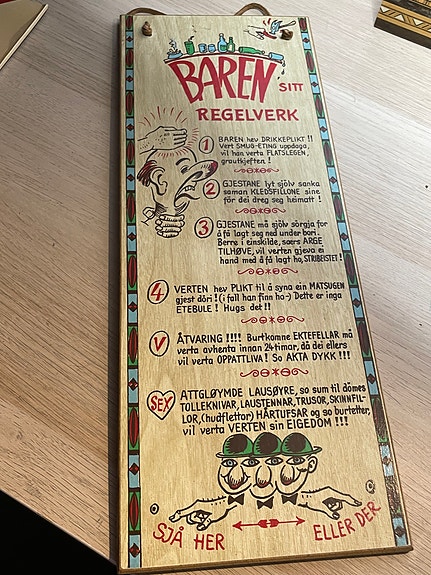 BAREN SITT
REGELVERK
1 BAREN hev DRIKKEPLIKT !!
Vert SMUG-ETING uppdaga,
vil han verta FLATSLEGEN,
grautkjeften !
2 GJESTANE lyt sjölv sanka
saman KLEDSFILLONE sine
för dei dreg seg heimatt !
3 GJESTANE må sjölv sörgja for
å få lagt seg ned under bori.
Berre i einskilde, særs ARGE
TILHØVE, vil verten gjeva ei
hand med å få lagt ho, STRIBEISTET !
4 VERTEN hev PLIKT til å syna ein MATSUGEN
gjest döri ! (i fall han finn ho-) Dette er inga
ETEBULE ! Hugs det !!
V ÅTVARING !!!! Burtkomne EKTEFELLAR må
verta avhenta innan 24 timar, då dei ellers
vil verta OPPATTLIVA ! So AKTA DYKK !!!
SEX ATTGLØYMDE LAUSØYRE, so sum til dömes
TOLLEKNIVAR, LAUSTENNAR, TRUSOR, SKINNFIL-
LOR, (hudflettor) HÅRTUFSAR og so burtetter,
vil verta VERTEN sin EIGEDOM !!!
SJÅ HER ELLER DER